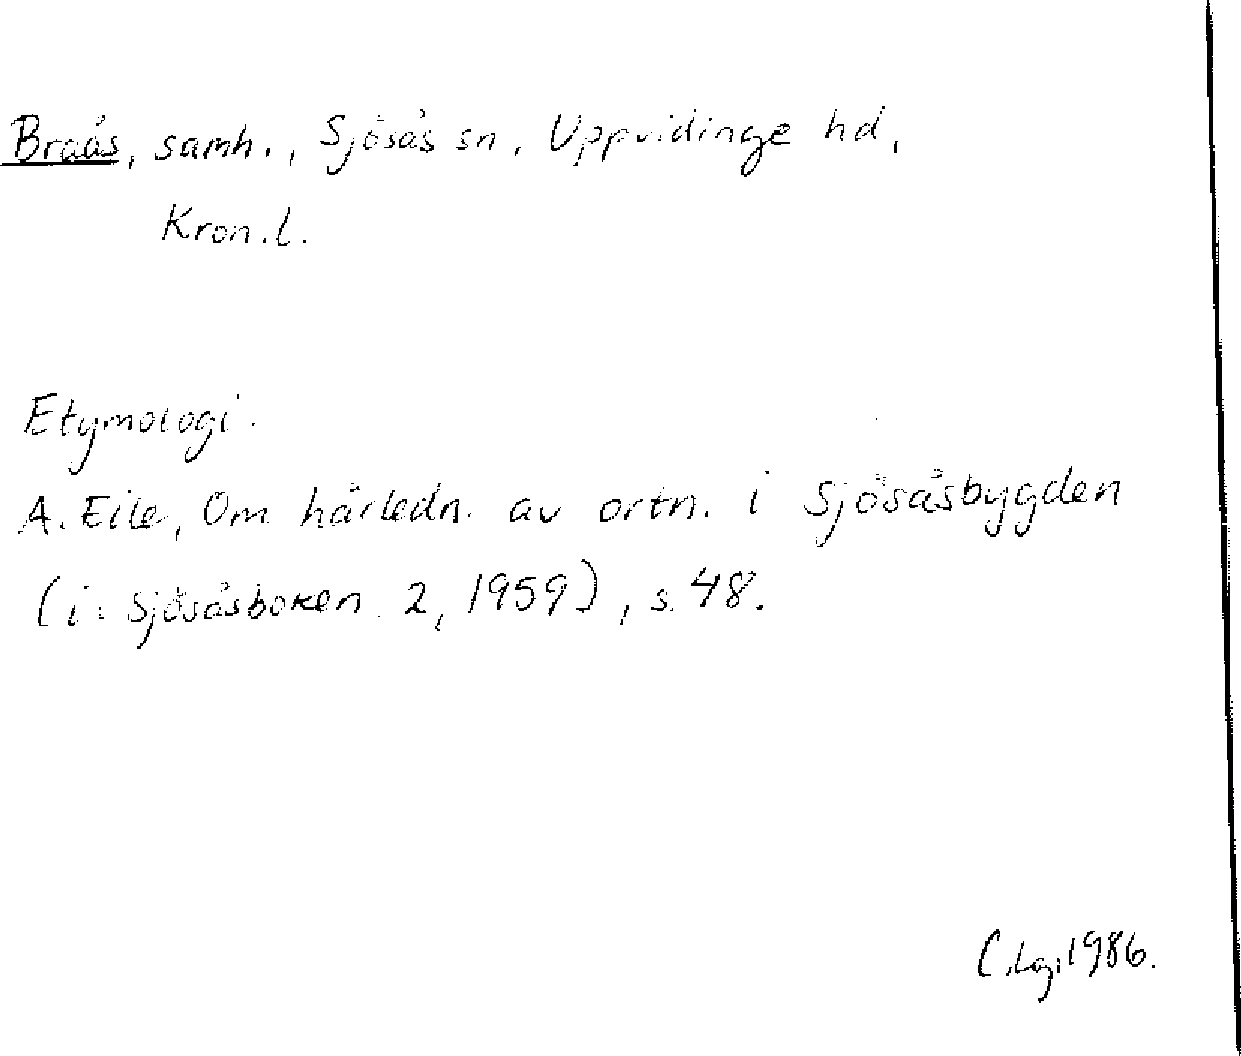 Braås, samh., Sjösås sn, Uppvidinge hd,
Kron.l.
Etymologi.
A. Eile, Om härledn. av ortn. i Sjösåsbygden
(i: Sjösåsboken 2, 1959), s. 48.
1986.